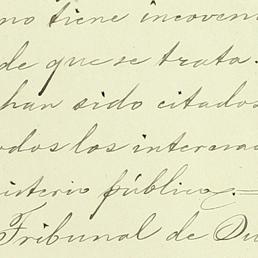 no tiene inconveni
de que se trata.
han sido citados
odos los interesad
isterio público.=
Tribunal de Du